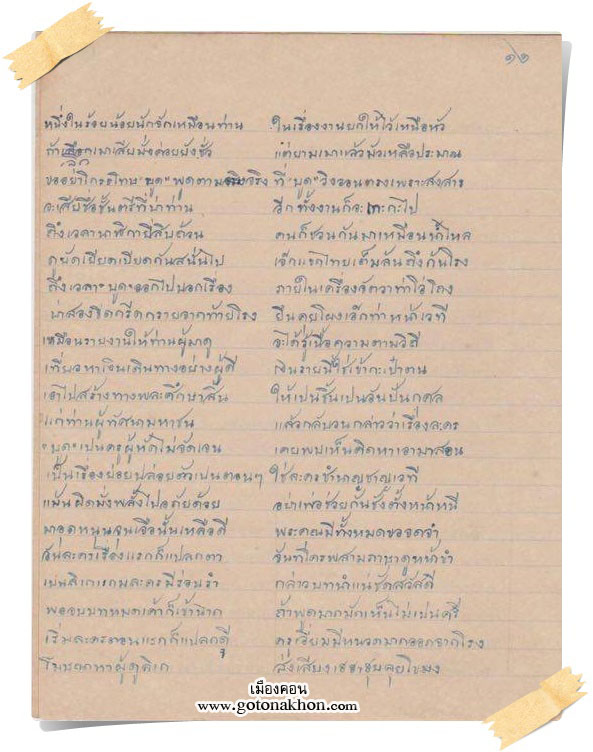 ๑๑
หนึ่งในร้อยน้อยนักจักเหมือนท่าน ในเรื่องงานยกให้ไว้เหนือหัว
ถ้าเลือกเมาเสียมั่งค่อยยังชั่ว แต่ยามเมาแล้วมัวเหลือประมาณ
ขออย่าโกรธโทษ "บูด" พูดตามจริง ที่ "บูด" วิงวอนตรงเพราะสงสาร
จะเสียชื่อชั้นตรีที่น่าท่าน อีกทั้งงานก็จะเกะกะไป
ถึงเวลานาฬิกายี่สิบถ้วน คนก็ชวนกันมาเหมือนน้ำไหล
ดูยัดเยียดเบียดกันสนั่นไป เจ๊กแขกไทยเต็มลั่นถึงกันโรง
ถึงเวลา "บูด" ออกไปบอกเรื่อง ภายในเครื่องจัดวาท่าโอ่โถง
น่าสองขีดกรีดกรายจากท้ายโรง ยืนคุยโผงเอ้กท่าหน้าเวที
เหมือนรายงานให้ท่านผู้มาดู จะได้รู้เนื้อความตามวิถี
เที่ยวหาเงินเดินทางอย่างผู้ดี เงินรายนี้ใช่เข้ากะเป๋าตน
เอาไปสร้างทางพละศึกษาสิ้น ให้เป็นชิ้นเป็นอันปันกุศล
แก่ท่านผู้ทัศนามหาชน แล้วกลับวนกล่าวว่าเรื่องละคร
"บูด" เป็นครูผู้หัดไม่จัดเจน เคยพบเห็นคิดหาเอามาสอน
เป็นเรื่องย่อยปล่อยตัวเป็นตอนๆ ใช่ละครชำนาญชาญเวที
แม้นผิดมั่งพลั้งไปอภัยด้วย อย่าเพ่อช่วยกันชังตั้งหน้าหนี
มาอุดหนุนจุนเจือนั้นเหลือดี พระคุณมีทั้งหมดขอจดจำ
อันละครเรื่องแรกก็แปลกตา อันที่ใครพสามภาษาดูหน้าขำ
เป็นลิเกแกมละครมีร่อนรำ กล่าวบทนำแน่ชัดสวัสดี
พอจบบทหมดเค้าก็เข้าฉาก ถ้าพูดมากมักเห็นไม่เป็นศรี
เริ่มละครตอนแรกก็แปลกดี ครูเรี่ยมมีหนวดมากออกจากโรง
โบนอกหาผู้ดูลิเก ส่งเสียงเฮฮาฮุบลุยโขมง
เมืองคอน
www.gotonakhon.com